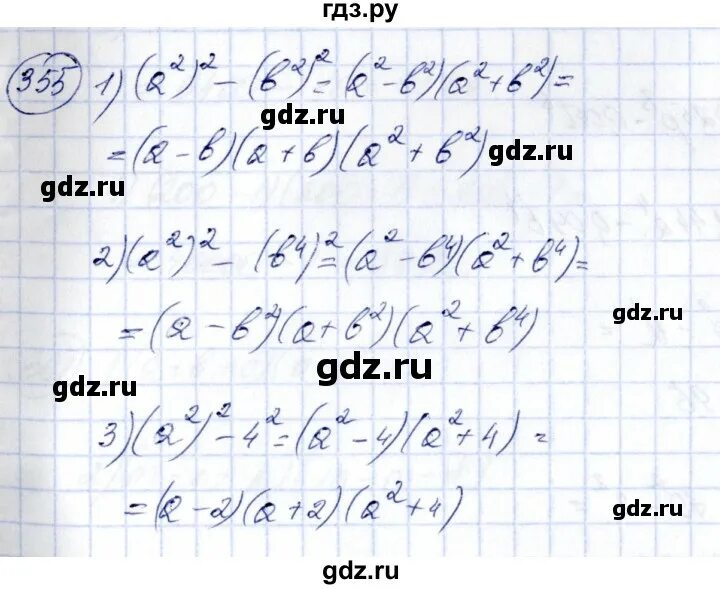 гдз.ру
355 1) (a²)² - (b²)² = (a² - b²)(a² + b²) =
gdz.ru
= (a - b)(a + b)(a² + b²)
gdz.ru
gdz.ru
2) (a²)² - (b⁴)² = (a² - b⁴)(a² + b⁴) =
gdz.ru
= (a - b²)(a + b²)(a² + b⁴)
gdz.ru
gdz.ru
3) (a²)² - 4² = (a² - 4)(a² + 4) =
= (a - 2)(a + 2)(a² + 4)
gdz.ru
gdz.ru